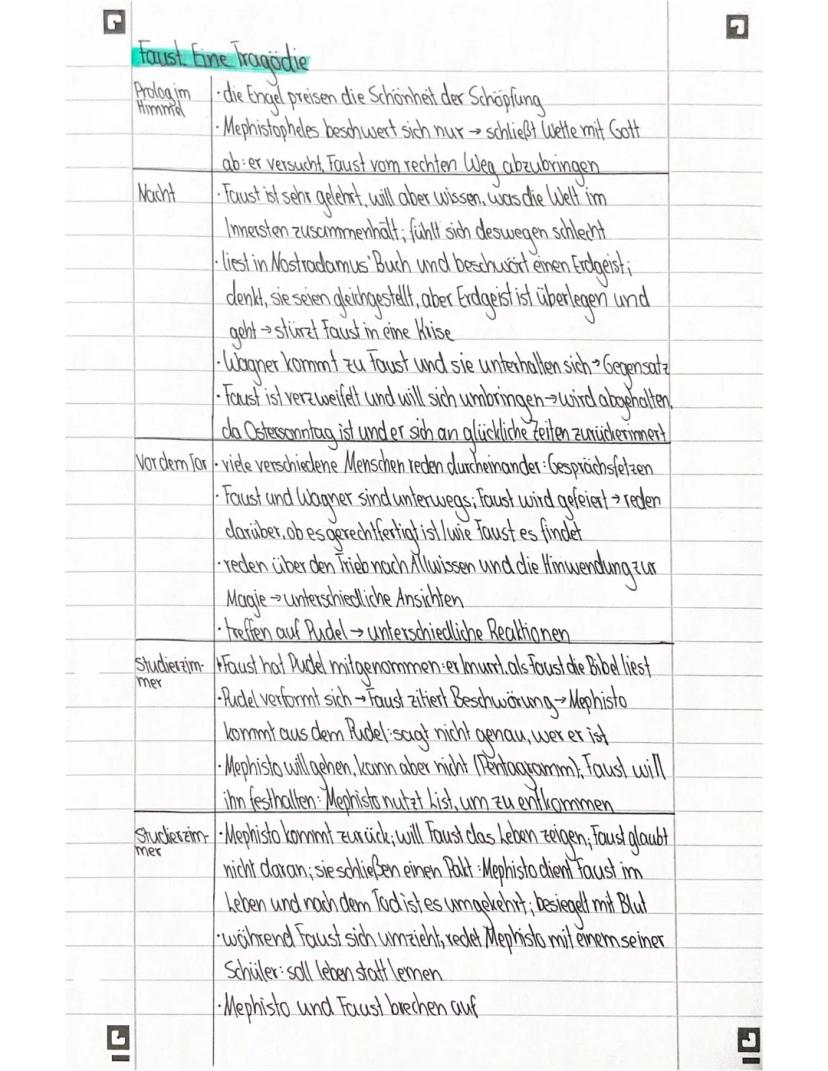 Faust. Eine Tragödie
Prolog im Himmel · die Engel preisen die Schönheit der Schöpfung
· Mephistopheles beschwert sich nur → schließt Wette mit Gott
ab: er versucht, Faust vom rechten Weg abzubringen
Nacht · Faust ist sehr gelehrt, will aber wissen, was die Welt im
Innersten zusammenhält; fühlt sich deswegen schlecht
· liest in Nostradamus' Buch und beschwört einen Erdgeist;
denkt, sie seien gleichgestellt, aber Erdgeist ist überlegen und
geht → stürzt Faust in eine Krise
· Wagner kommt zu Faust und sie unterhalten sich → Gegensatz
· Faust ist verzweifelt und will sich umbringen → wird abgehalten,
da Ostersonntag ist und er sich an glückliche Zeiten zurückerinnert
Vor dem Tor · viele verschiedene Menschen reden durcheinander: Gesprächsfetzen
· Faust und Wagner sind unterwegs; Faust wird gefeiert → reden
darüber, ob es gerechtfertigt ist/wie Faust es findet
· reden über den Trieb nach Allwissen und die Hinwendung zur
Magie → unterschiedliche Ansichten
· treffen auf Pudel → unterschiedliche Reaktionen
Studierzim- · Faust hat Pudel mitgenommen: er knurrt, als Faust die Bibel liest
mer
· Pudel verformt sich → Faust zitiert Beschwörung → Mephisto
kommt aus dem Pudel: sagt nicht genau, wer er ist
· Mephisto will gehen, kann aber nicht (Pentagramm), Faust will
ihn festhalten: Mephisto nutzt List, um zu entkommen
Studierzim- · Mephisto kommt zurück; will Faust das Leben zeigen; Faust glaubt
mer
nicht daran; sie schließen einen Pakt: Mephisto dient Faust im
Leben und nach dem Tod ist es umgekehrt; besiegelt mit Blut
· während Faust sich umzieht, redet Mephisto mit einem seiner
Schüler: soll leben statt lernen
· Mephisto und Faust brechen auf